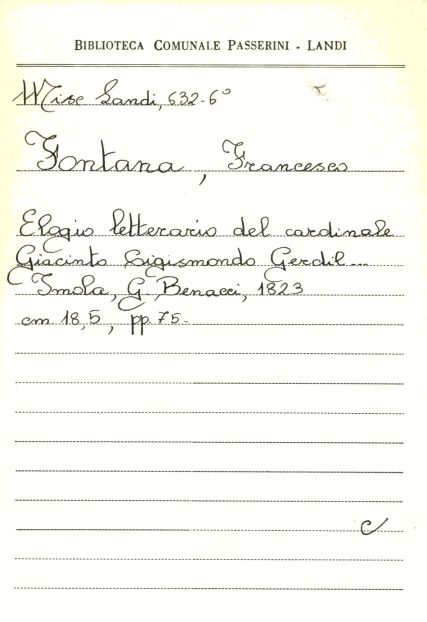 BIBLIOTECA COMUNALE PASSERINI - LANDI
Misc Landi, 632-6°
Fontana, Francesco
Elogio letterario del cardinale
Giacinto Sigismondo Gerdil...
Imola, G. Benacci, 1823
cm 18,5, pp. 75-
c